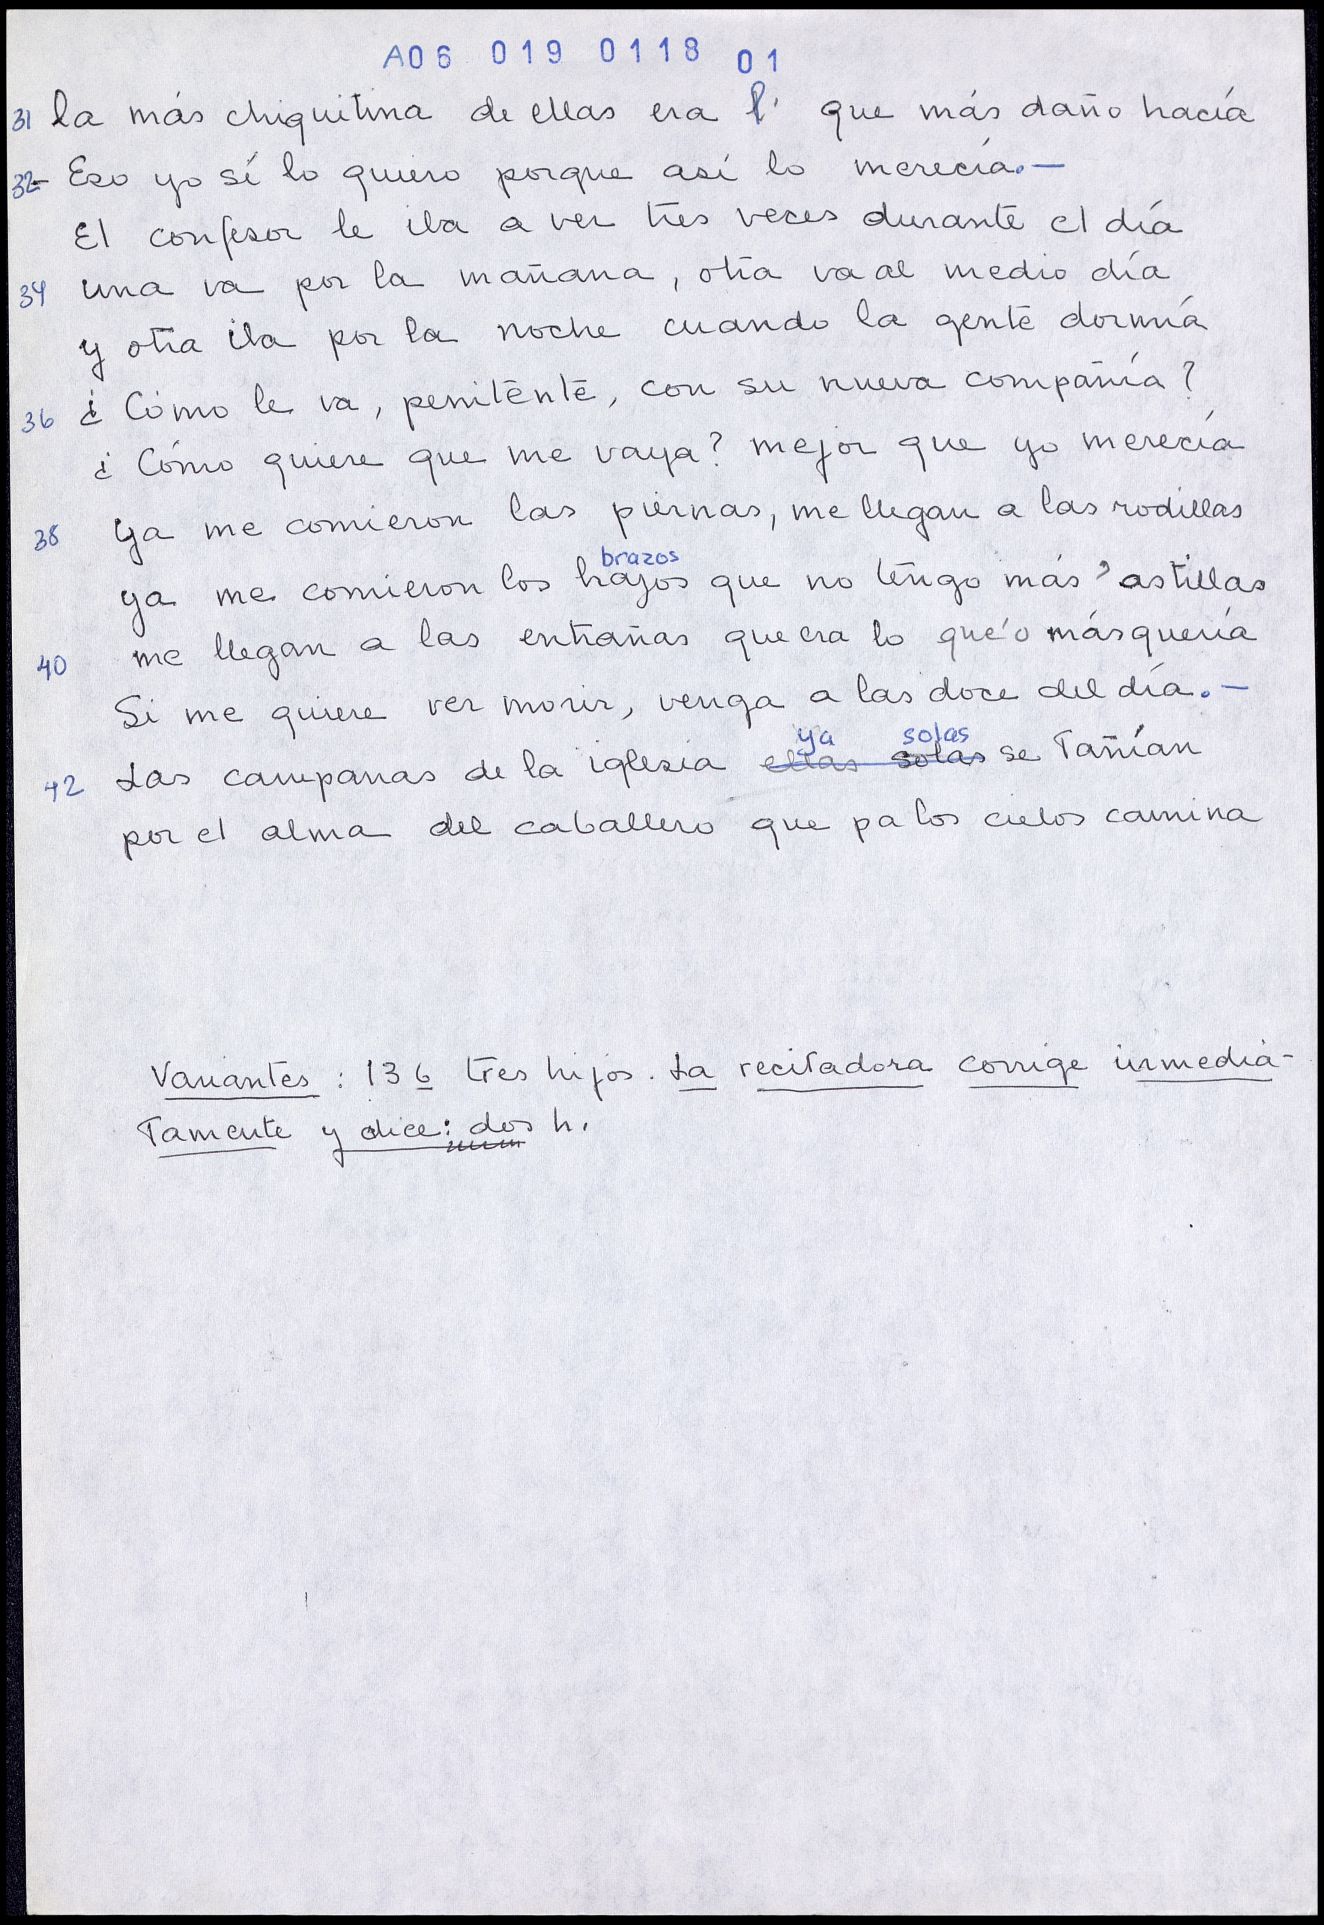 A06 019 0118 01
31 la más chiquitina de ellas era l' que más daño hacía
32 - Eso yo sí lo quiero porque así lo merecía.—
El confesor le iba a ver tres veces durante el día
34 una va por la mañana, otra va al medio día
y otra iba por la noche cuando la gente dormía
36 ¿Cómo le va, penitente, con su nueva compañía?
¿Cómo quiere que me vaya? mejor que yo merecía
38 ya me comieron las piernas, me llegan a las rodillas
brazos
ya me comieron los hajos que no tengo más' astillas
40 me llegan a las entrañas que era lo que'o más quería
Si me quiere ver morir, venga a las doce del día.—
ya solas
42 Las campanas de la iglesia ellas solas se tañían
por el alma del caballero que pa los cielos camina
Variantes: 136 tres hijos. La recitadora corrige inmedia-
tamente y dice: dos h.